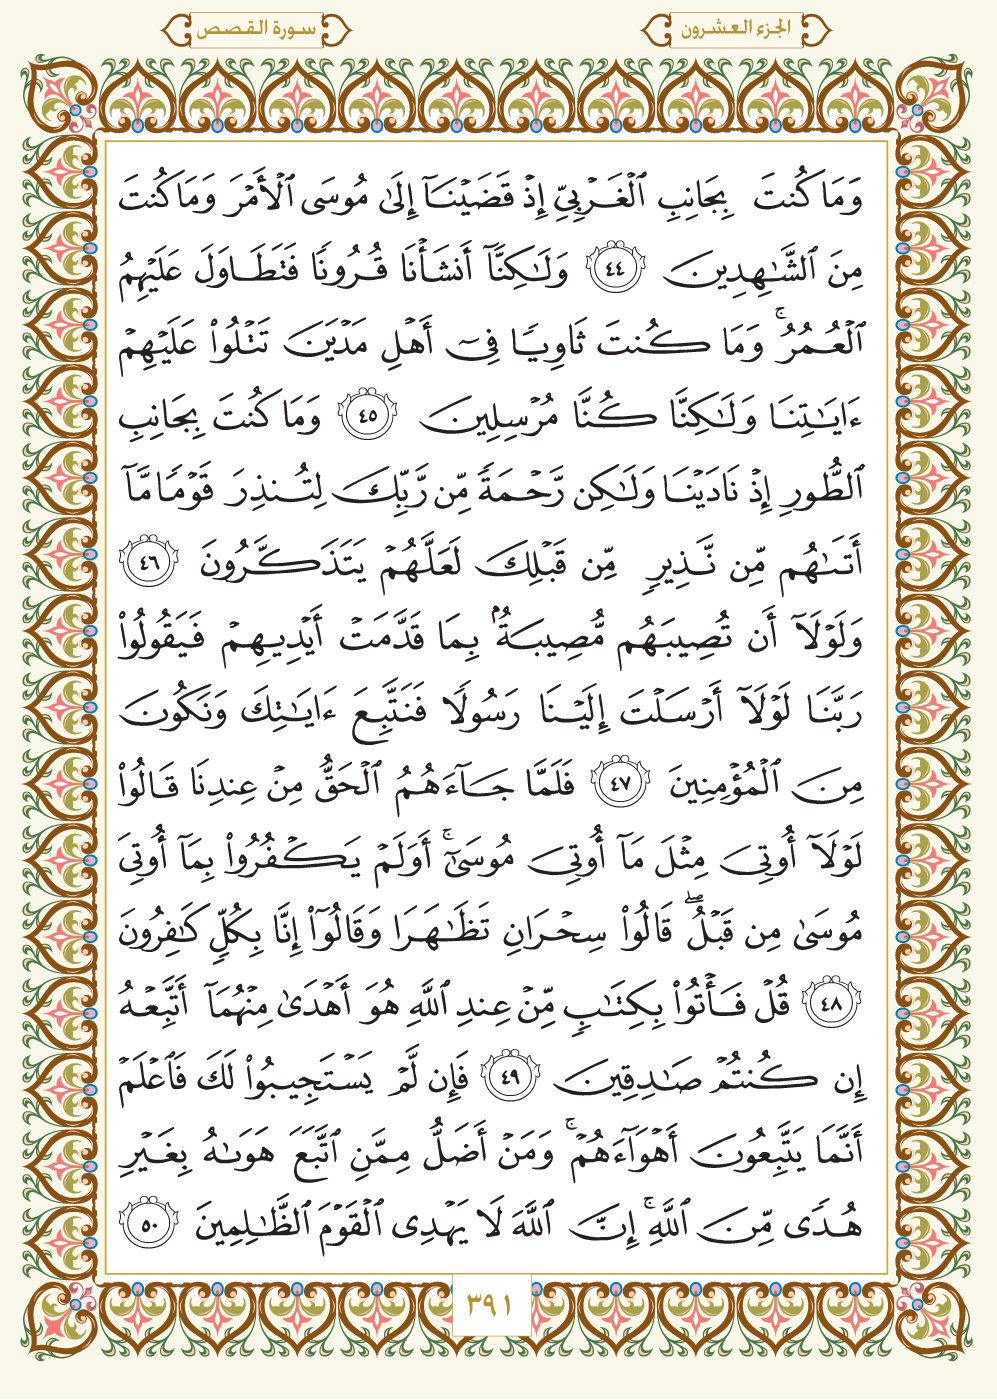 الجزء العشرون
سورة القصص
وَمَا كُنتَ بِجَانِبِ ٱلْغَرْبِىِّ إِذْ قَضَيْنَآ إِلَىٰ مُوسَى ٱلْأَمْرَ وَمَا كُنتَ
مِنَ ٱلشَّـٰهِدِينَ ٤٤ وَلَـٰكِنَّآ أَنشَأْنَا قُرُونًا فَتَطَاوَلَ عَلَيْهِمُ
ٱلْعُمُرُ ۚ وَمَا كُنتَ ثَاوِيًا فِىٓ أَهْلِ مَدْيَنَ تَتْلُوا۟ عَلَيْهِمْ
ءَايَـٰتِنَا وَلَـٰكِنَّا كُنَّا مُرْسِلِينَ ٤٥ وَمَا كُنتَ بِجَانِبِ
ٱلطُّورِ إِذْ نَادَيْنَا وَلَـٰكِن رَّحْمَةً مِّن رَّبِّكَ لِتُنذِرَ قَوْمًا مَّآ
أَتَىٰهُم مِّن نَّذِيرٍ مِّن قَبْلِكَ لَعَلَّهُمْ يَتَذَكَّرُونَ ٤٦
وَلَوْلَآ أَن تُصِيبَهُم مُّصِيبَةٌۢ بِمَا قَدَّمَتْ أَيْدِيهِمْ فَيَقُولُوا۟
رَبَّنَا لَوْلَآ أَرْسَلْتَ إِلَيْنَا رَسُولًا فَنَتَّبِعَ ءَايَـٰتِكَ وَنَكُونَ
مِنَ ٱلْمُؤْمِنِينَ ٤٧ فَلَمَّا جَآءَهُمُ ٱلْحَقُّ مِنْ عِندِنَا قَالُوا۟
لَوْلَآ أُوتِىَ مِثْلَ مَآ أُوتِىَ مُوسَىٰٓ ۚ أَوَلَمْ يَكْفُرُوا۟ بِمَآ أُوتِىَ
مُوسَىٰ مِن قَبْلُ ۖ قَالُوا۟ سِحْرَانِ تَظَـٰهَرَا وَقَالُوٓا۟ إِنَّا بِكُلٍّ كَـٰفِرُونَ
٤٨ قُلْ فَأْتُوا۟ بِكِتَـٰبٍ مِّنْ عِندِ ٱللَّهِ هُوَ أَهْدَىٰ مِنْهُمَآ أَتَّبِعْهُ
إِن كُنتُمْ صَـٰدِقِينَ ٤٩ فَإِن لَّمْ يَسْتَجِيبُوا۟ لَكَ فَٱعْلَمْ
أَنَّمَا يَتَّبِعُونَ أَهْوَآءَهُمْ ۚ وَمَنْ أَضَلُّ مِمَّنِ ٱتَّبَعَ هَوَىٰهُ بِغَيْرِ
هُدًى مِّنَ ٱللَّهِ ۚ إِنَّ ٱللَّهَ لَا يَهْدِى ٱلْقَوْمَ ٱلظَّـٰلِمِينَ ٥٠
٣٩١